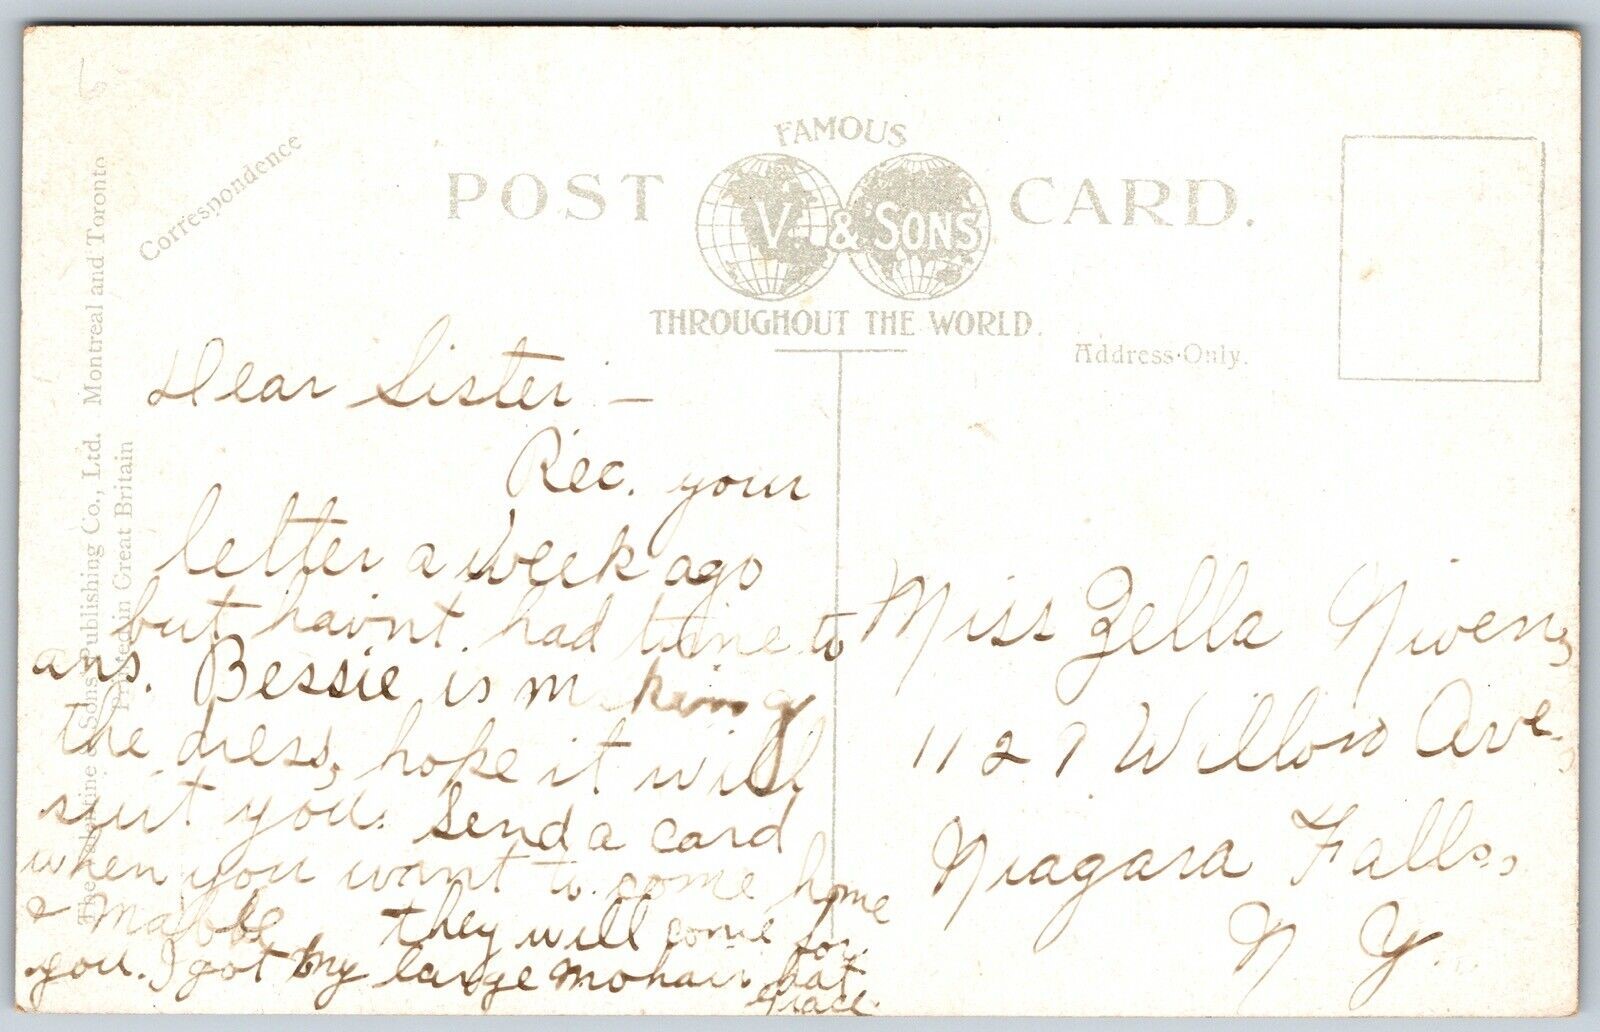 Correspondence
POST CARD.
FAMOUS
V. & SONS
THROUGHOUT THE WORLD.
Address Only.
The Valentine & Sons' Publishing Co., Ltd. Montreal and Toronto
Printed in Great Britain
Dear Sister –
Rec. your
letter a week ago
but havnt had time to
ans. Bessie is making
the dress, hope it will
suit you. Send a card
when you want to come home
& they will come for
you. I got my large mohair hat
Grace.
Miss Zella Niven,
1127 Willow Ave.,
Niagara Falls,
N. Y.